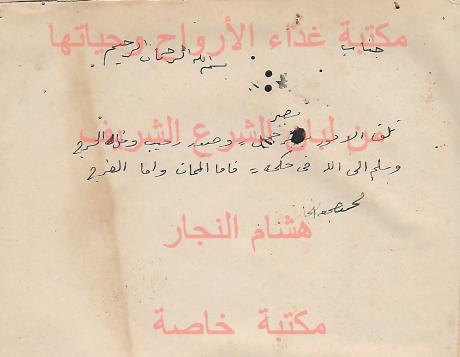 مكتبة غذاء الأرواح وحياتها
جناب
بسم الله الرحمان الرحيم
من لبان الشرع الشريف
تلق الامور بصبر جميل وصدر رحيب وخل الحرج
وسلم الى الله في حكمه فاما الممات واما الفرج
هشام النجار
مكتبة خاصة